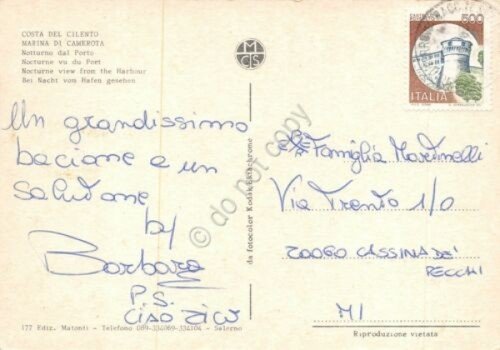 COSTA DEL CILENTO
MARINA DI CAMEROTA
Notturno dal Porto
Nocturne vu du Port
Nocturne view from the Harbour
Bei Nacht vom Hafen gesehen
MCS
500
ITALIA
Un grandissimo
bacione e un
salutone
by
Barbara
P.S.
CIAO ZICO
177 Ediz. Matonti - Telefono 089-334069-334104 - Salerno
da fotocolor Kodak Ektachrome
Famiglia Martinelli
Via Trento 1/0
20060 CASSINA DE'
PECCHI
MI
Riproduzione vietata
© do not copy